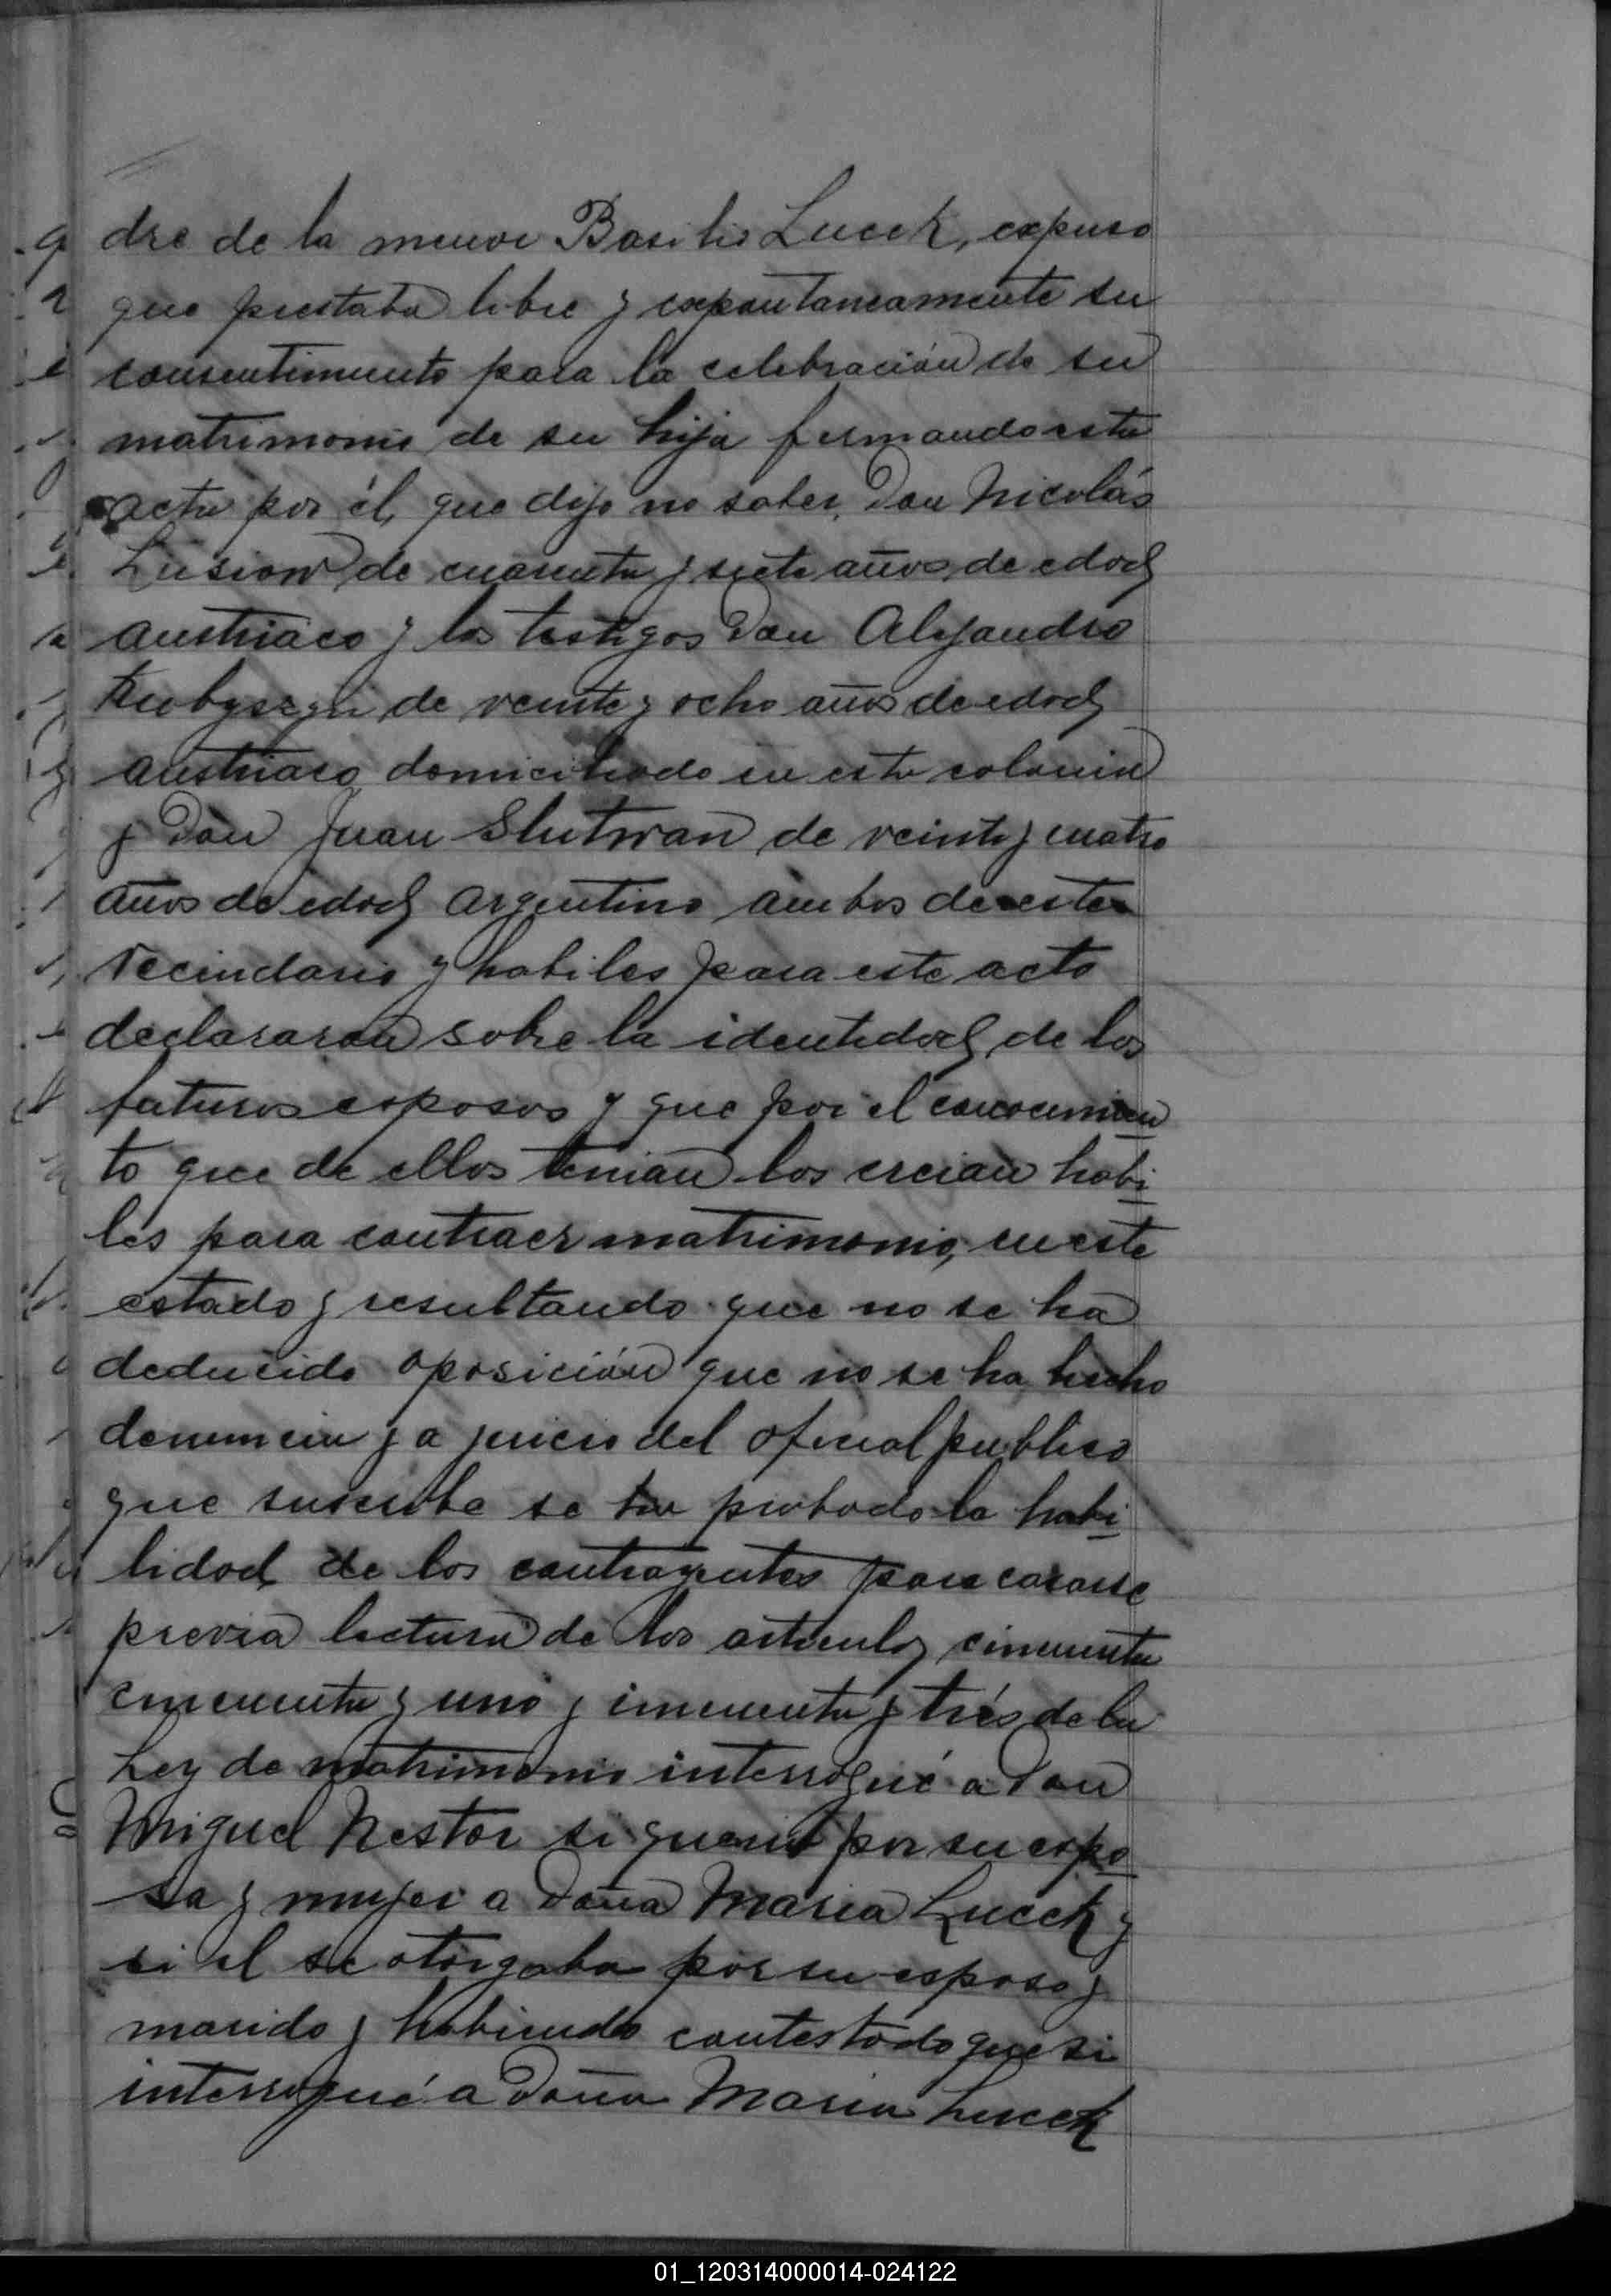 dre de la menor Basilio Lucek, expuso
que prestaba libre y expontaneamente su
consentimiento para la celebración de su
matrimonio de su hija firmando esta
acta por él, que dijo no saber, Don Nicolás
Lusion de cuarenta y siete años de edad
austriaco y los testigos Don Alejandro
de veinte y ocho años de edad
austriaco domiciliado en esta colonia
y Don Juan Slutwan de veinte y cuatro
años de edad argentino ambos de este
vecindario y habiles para este acto
declararon sobre la identidad de los
futuros esposos y que por el conocimien
to que de ellos tenian los creian habi
les para contraer matrimonio, en este
estado y resultando que no se ha
deducido oposición que no se ha hecho
denuncia y a juicio del oficial publico
que suscribe se ha probado la habi
lidad de los contrayentes para casarse
previa lectura de los articulos cincuenta
cincuenta y uno y cincuenta y trés de la
Ley de matrimonio interrogué a Don
Miguel Nestor si queria por su espo
sa y mujer a Doña Maria Lucek y
si el se otorgaba por su esposo y
marido y habiendo contestado que si
interrogué a Doña Maria Lucek
01_120314000014-024122